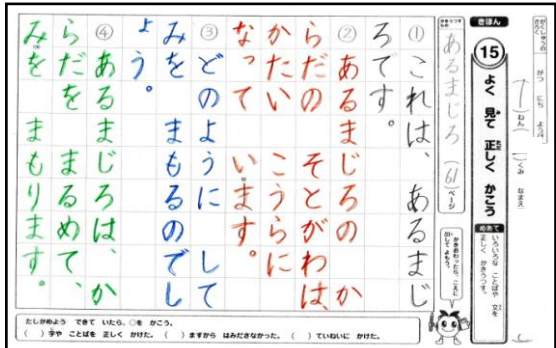 がくしゅうの きろく
がつ にち ようび
（ ）ねん （ ）くみ なまえ（ ）
きほん
15
よく 見て 正しく かこう
めあて
いろいろな ことばや 文を
正しく かきうつす。
かきうつす もの
あるまじろ (61) ページ
かきおわったら、こえに
出して よもう。
① これは、 あるまじ
ろです。
② あるまじろの か
らだの そとがわは、
かたい こうらに
なって います。
③ どのように して
みを まもるのでし
ょう。
④ あるまじろは、 か
らだを まるめて、
みを まもります。
たしかめよう できて いたら、○を かこう。
（ ）字や ことばを 正しく かけた。（ ）ますから はみださなかった。（ ）ていねいに かけた。